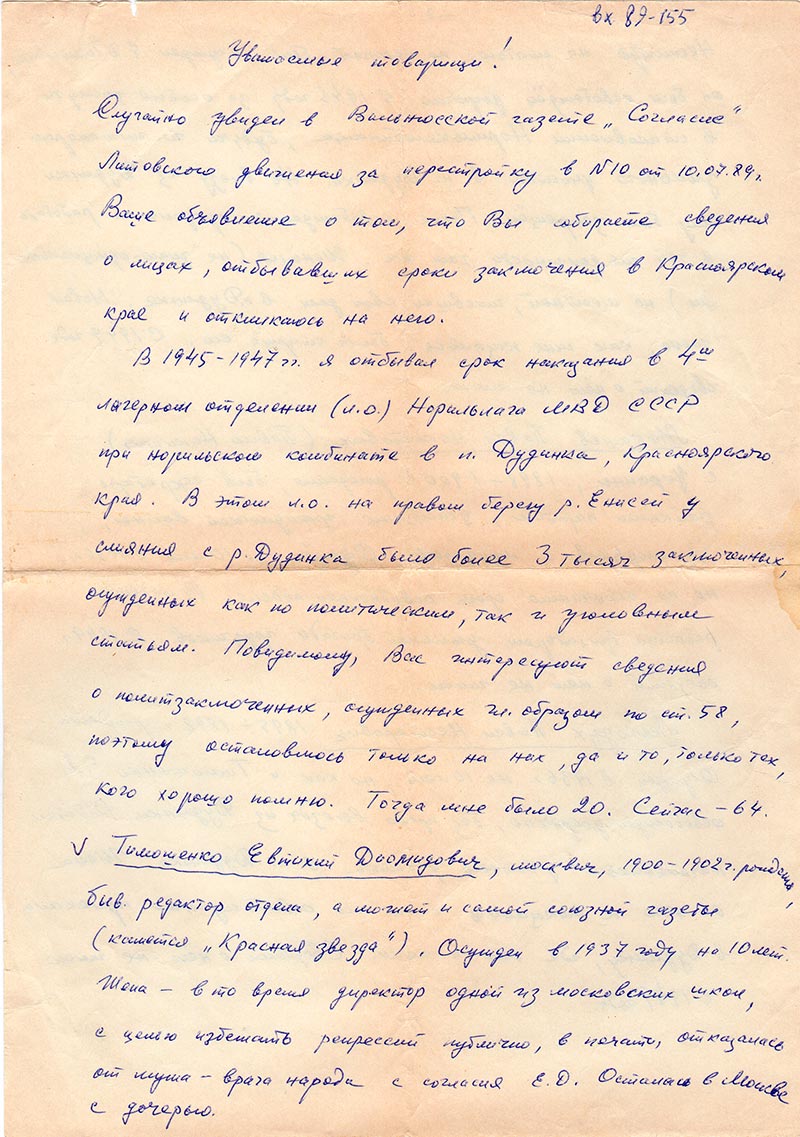 вх 89-155
Уважаемые товарищи!
Случайно увидел в Вильнюсской газете „Согласие"
Литовского движения за перестройку в N10 от 10.07.89г.
Ваше объявление о том, что Вы собираете сведения
о лицах, отбывавших сроки заключения в Красноярском
крае и откликаюсь на него.
В 1945-1947 гг. я отбывал срок наказания в 4ом
лагерном отделении (л.о.) Норильлага МВД СССР
при норильском комбинате в п. Дудинка, Красноярского
края. В этом л.о. на правом берегу р. Енисей у
слияния с р. Дудинка было более 3 тысяч заключенных,
осужденных как по политическим, так и уголовным
статьям. Повидимому, Вас интересуют сведения
о политзаключенных, осужденных гл. образом по ст. 58,
поэтому остановлюсь только на них, да и то, только тех,
кого хорошо помню. Тогда мне было 20. Сейчас – 64.
√ Тимошенко Евтихий Диомидович, москвич, 1900-1902г. рождения,
быв. редактор отдела, а может и самой союзной газеты
(кажется „Красная звезда"). Осужден в 1937 году на 10 лет.
Жена – в то время директор одной из московских школ,
с целью избежать репрессий публично, в печати, отказалась
от мужа – врага народа с согласия Е.Д. Осталась в Москве
с дочерью.